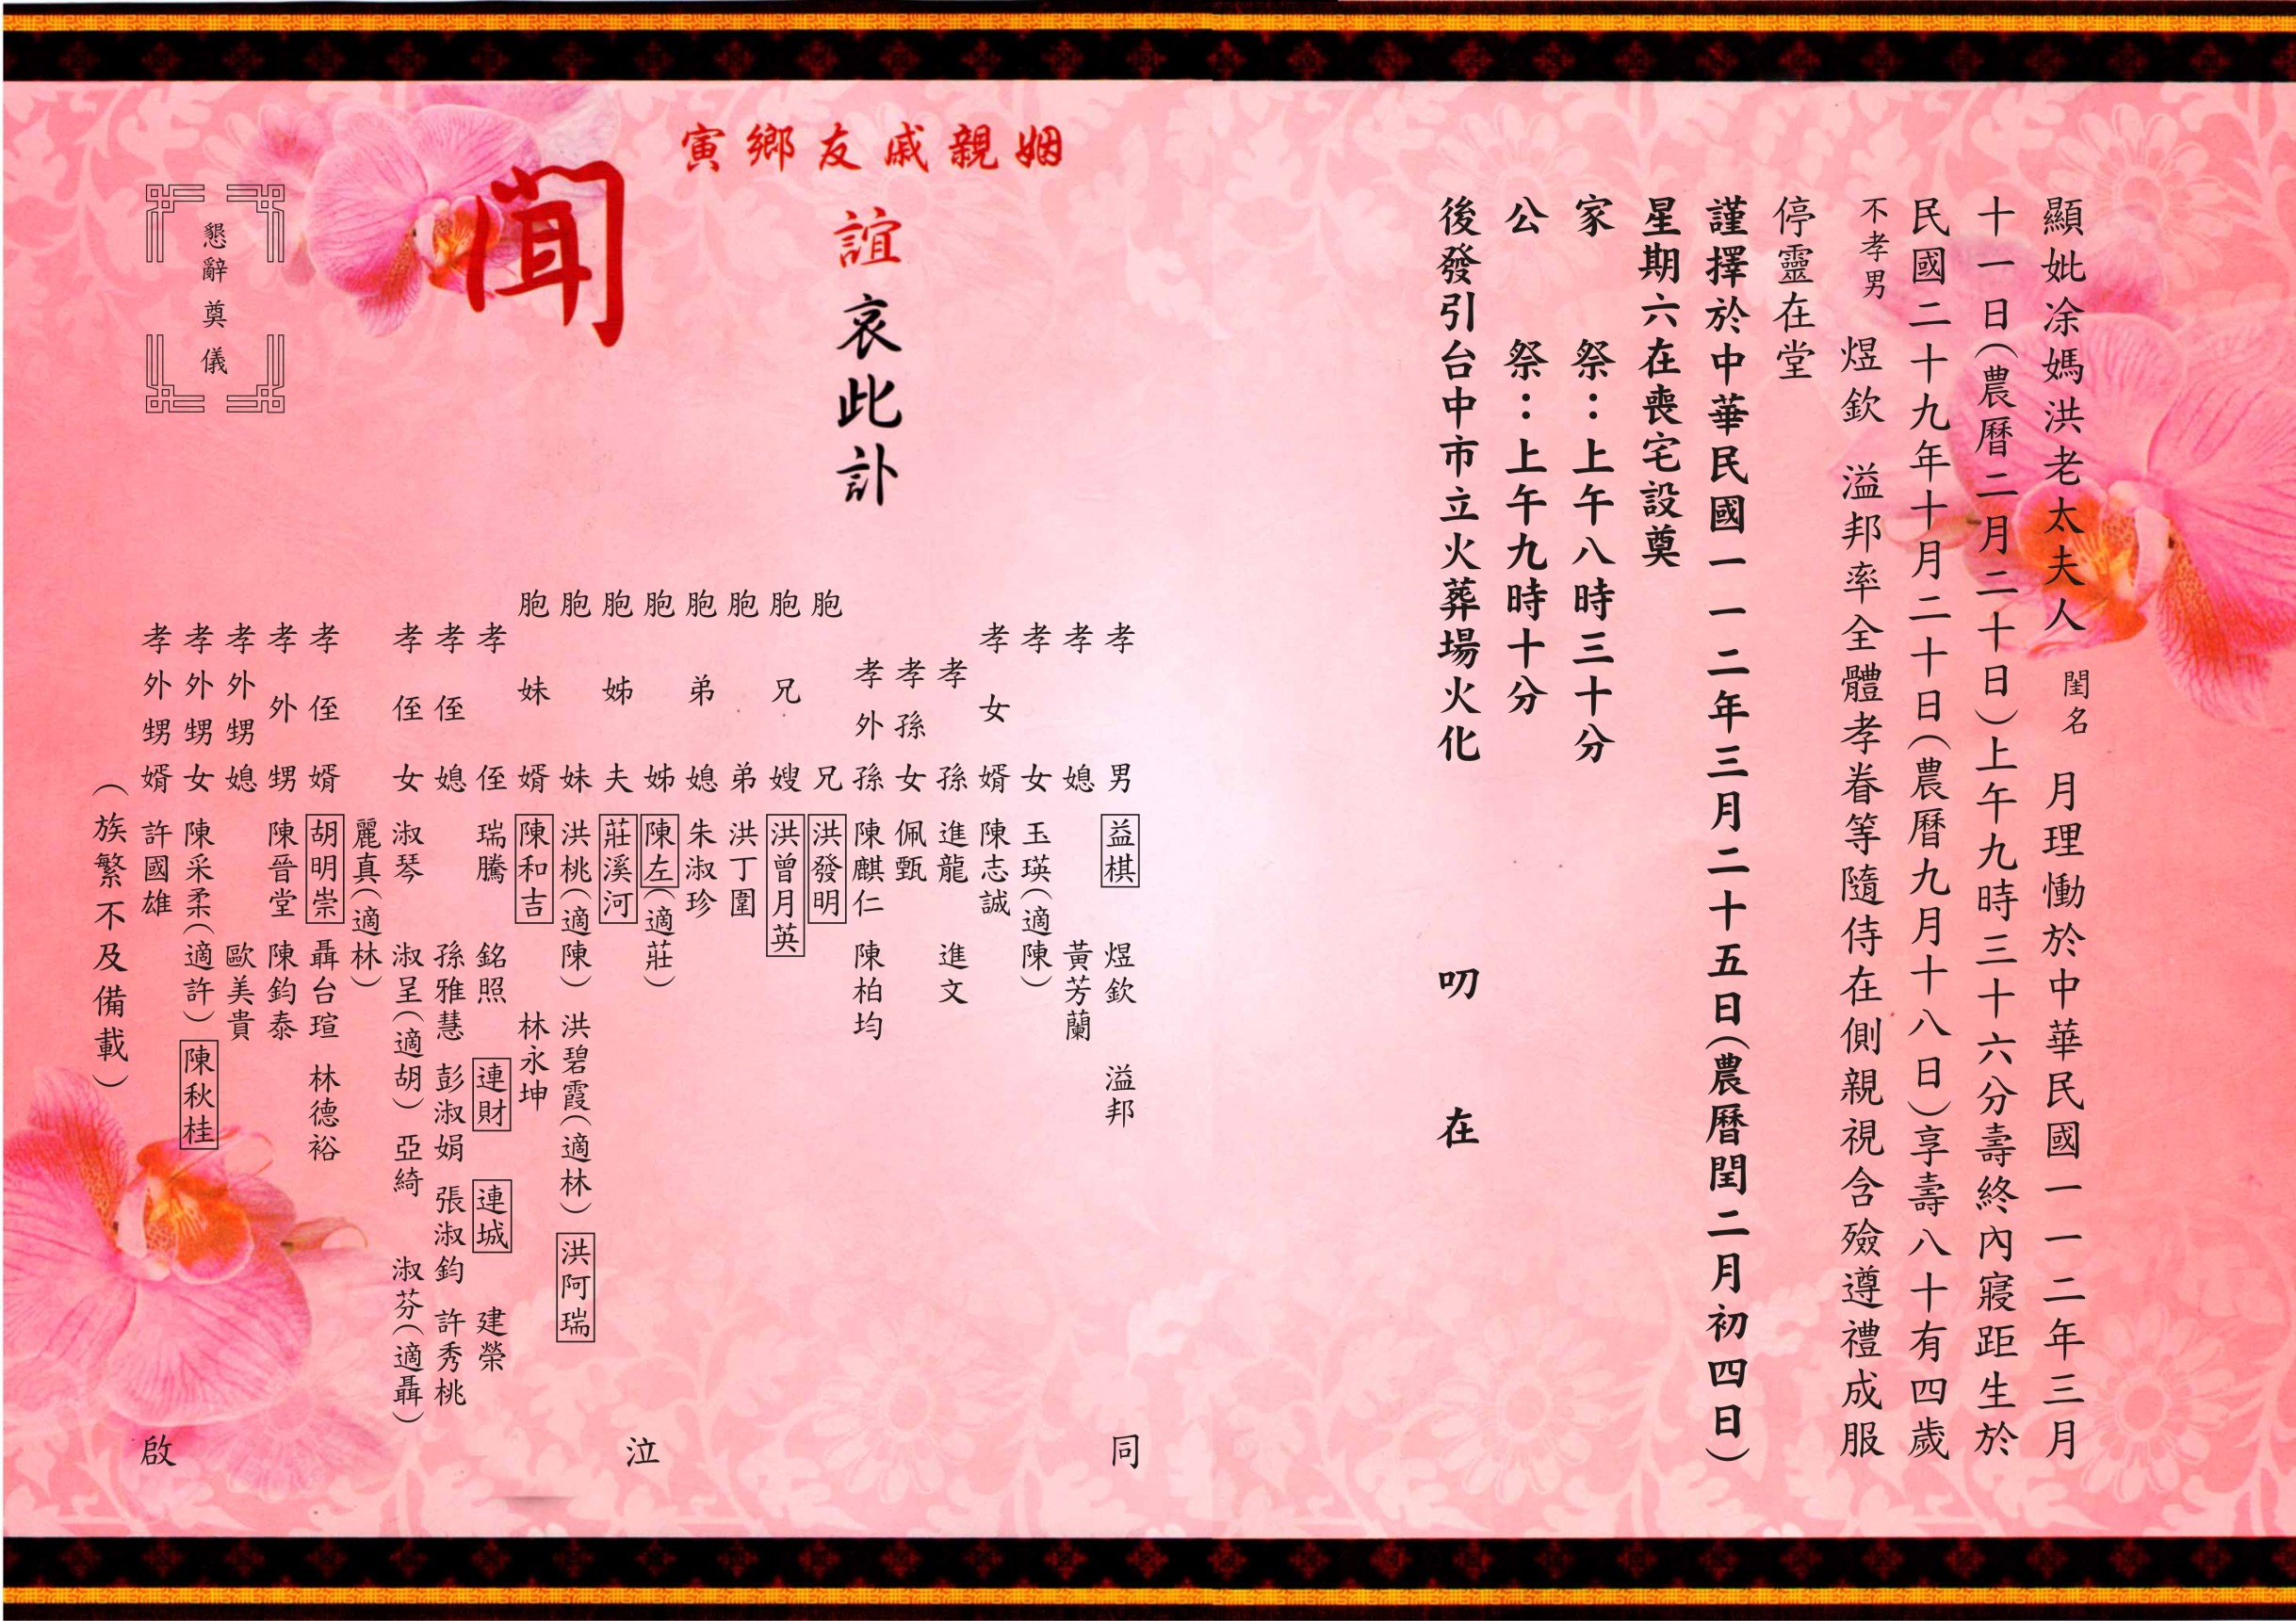 顯妣凃媽洪老太夫人 閨名 月理慟於中華民國一一二年三月
十一日(農曆二月二十日)上午九時三十六分壽終內寢距生於
民國二十九年十月二十日(農曆九月十八日)享壽八十有四歲
不孝男 煜欽 溢邦率全體孝眷等隨侍在側親視含殮遵禮成服
停靈在堂
謹擇於中華民國一一二年三月二十五日(農曆閏二月初四日)
星期六在喪宅設奠
家 祭：上午八時三十分
公 祭：上午九時十分
後發引台中市立火葬場火化 叨 在
姻親戚友鄉寅
誼哀此訃
聞
孝男 益棋 煜欽 溢邦
孝媳 黃芳蘭
孝女 玉瑛(適陳)
孝女婿 陳志誠
孝孫 進龍 進文
孝孫女 佩甄
孝外孫 陳麒仁 陳柏均
胞兄 洪發明
胞兄嫂 洪曾月英
胞弟 洪丁圍
胞弟媳 朱淑珍
胞姊 陳左(適莊)
胞姊夫 莊溪河
胞妹 洪桃(適陳) 洪碧霞(適林) 洪阿瑞
胞妹婿 陳和吉 林永坤
孝侄 瑞騰 銘照 連財 連城 建榮
孝侄媳 孫雅慧 彭淑娟 張淑鈞 許秀桃
孝侄女 淑琴 淑呈(適胡) 亞綺 淑芬(適聶)
麗真(適林)
孝侄婿 胡明崇 聶台瑄 林德裕
孝外甥 陳晉堂 陳鈞泰
孝外甥媳 歐美貴
孝外甥女 陳采柔(適許) 陳秋桂
孝外甥婿 許國雄
(族繁不及備載)
同 泣 啟
懇辭奠儀